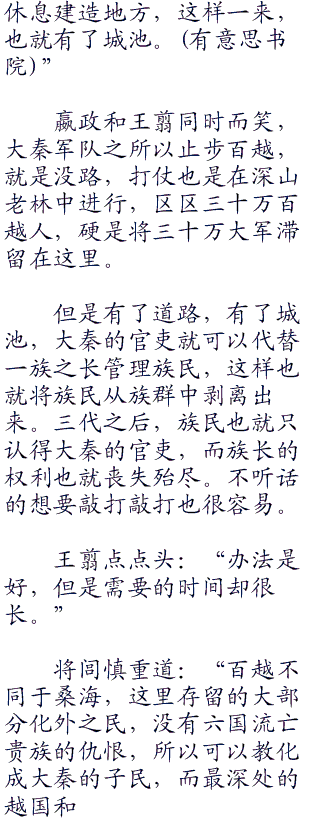 休息建造地方，这样一来，
也就有了城池。(有意思书
院)”
嬴政和王翦同时而笑，
大秦军队之所以止步百越，
就是没路，打仗也是在深山
老林中进行，区区三十万百
越人，硬是将三十万大军滞
留在这里。
但是有了道路，有了城
池，大秦的官吏就可以代替
一族之长管理族民，这样也
就将族民从族群中剥离出
来。三代之后，族民也就只
认得大秦的官吏，而族长的
权利也就丧失殆尽。不听话
的想要敲打敲打也很容易。
王翦点点头：“办法是
好，但是需要的时间却很
长。”
将闾慎重道：“百越不
同于桑海，这里存留的大部
分化外之民，没有六国流亡
贵族的仇恨，所以可以教化
成大秦的子民，而最深处的
越国和